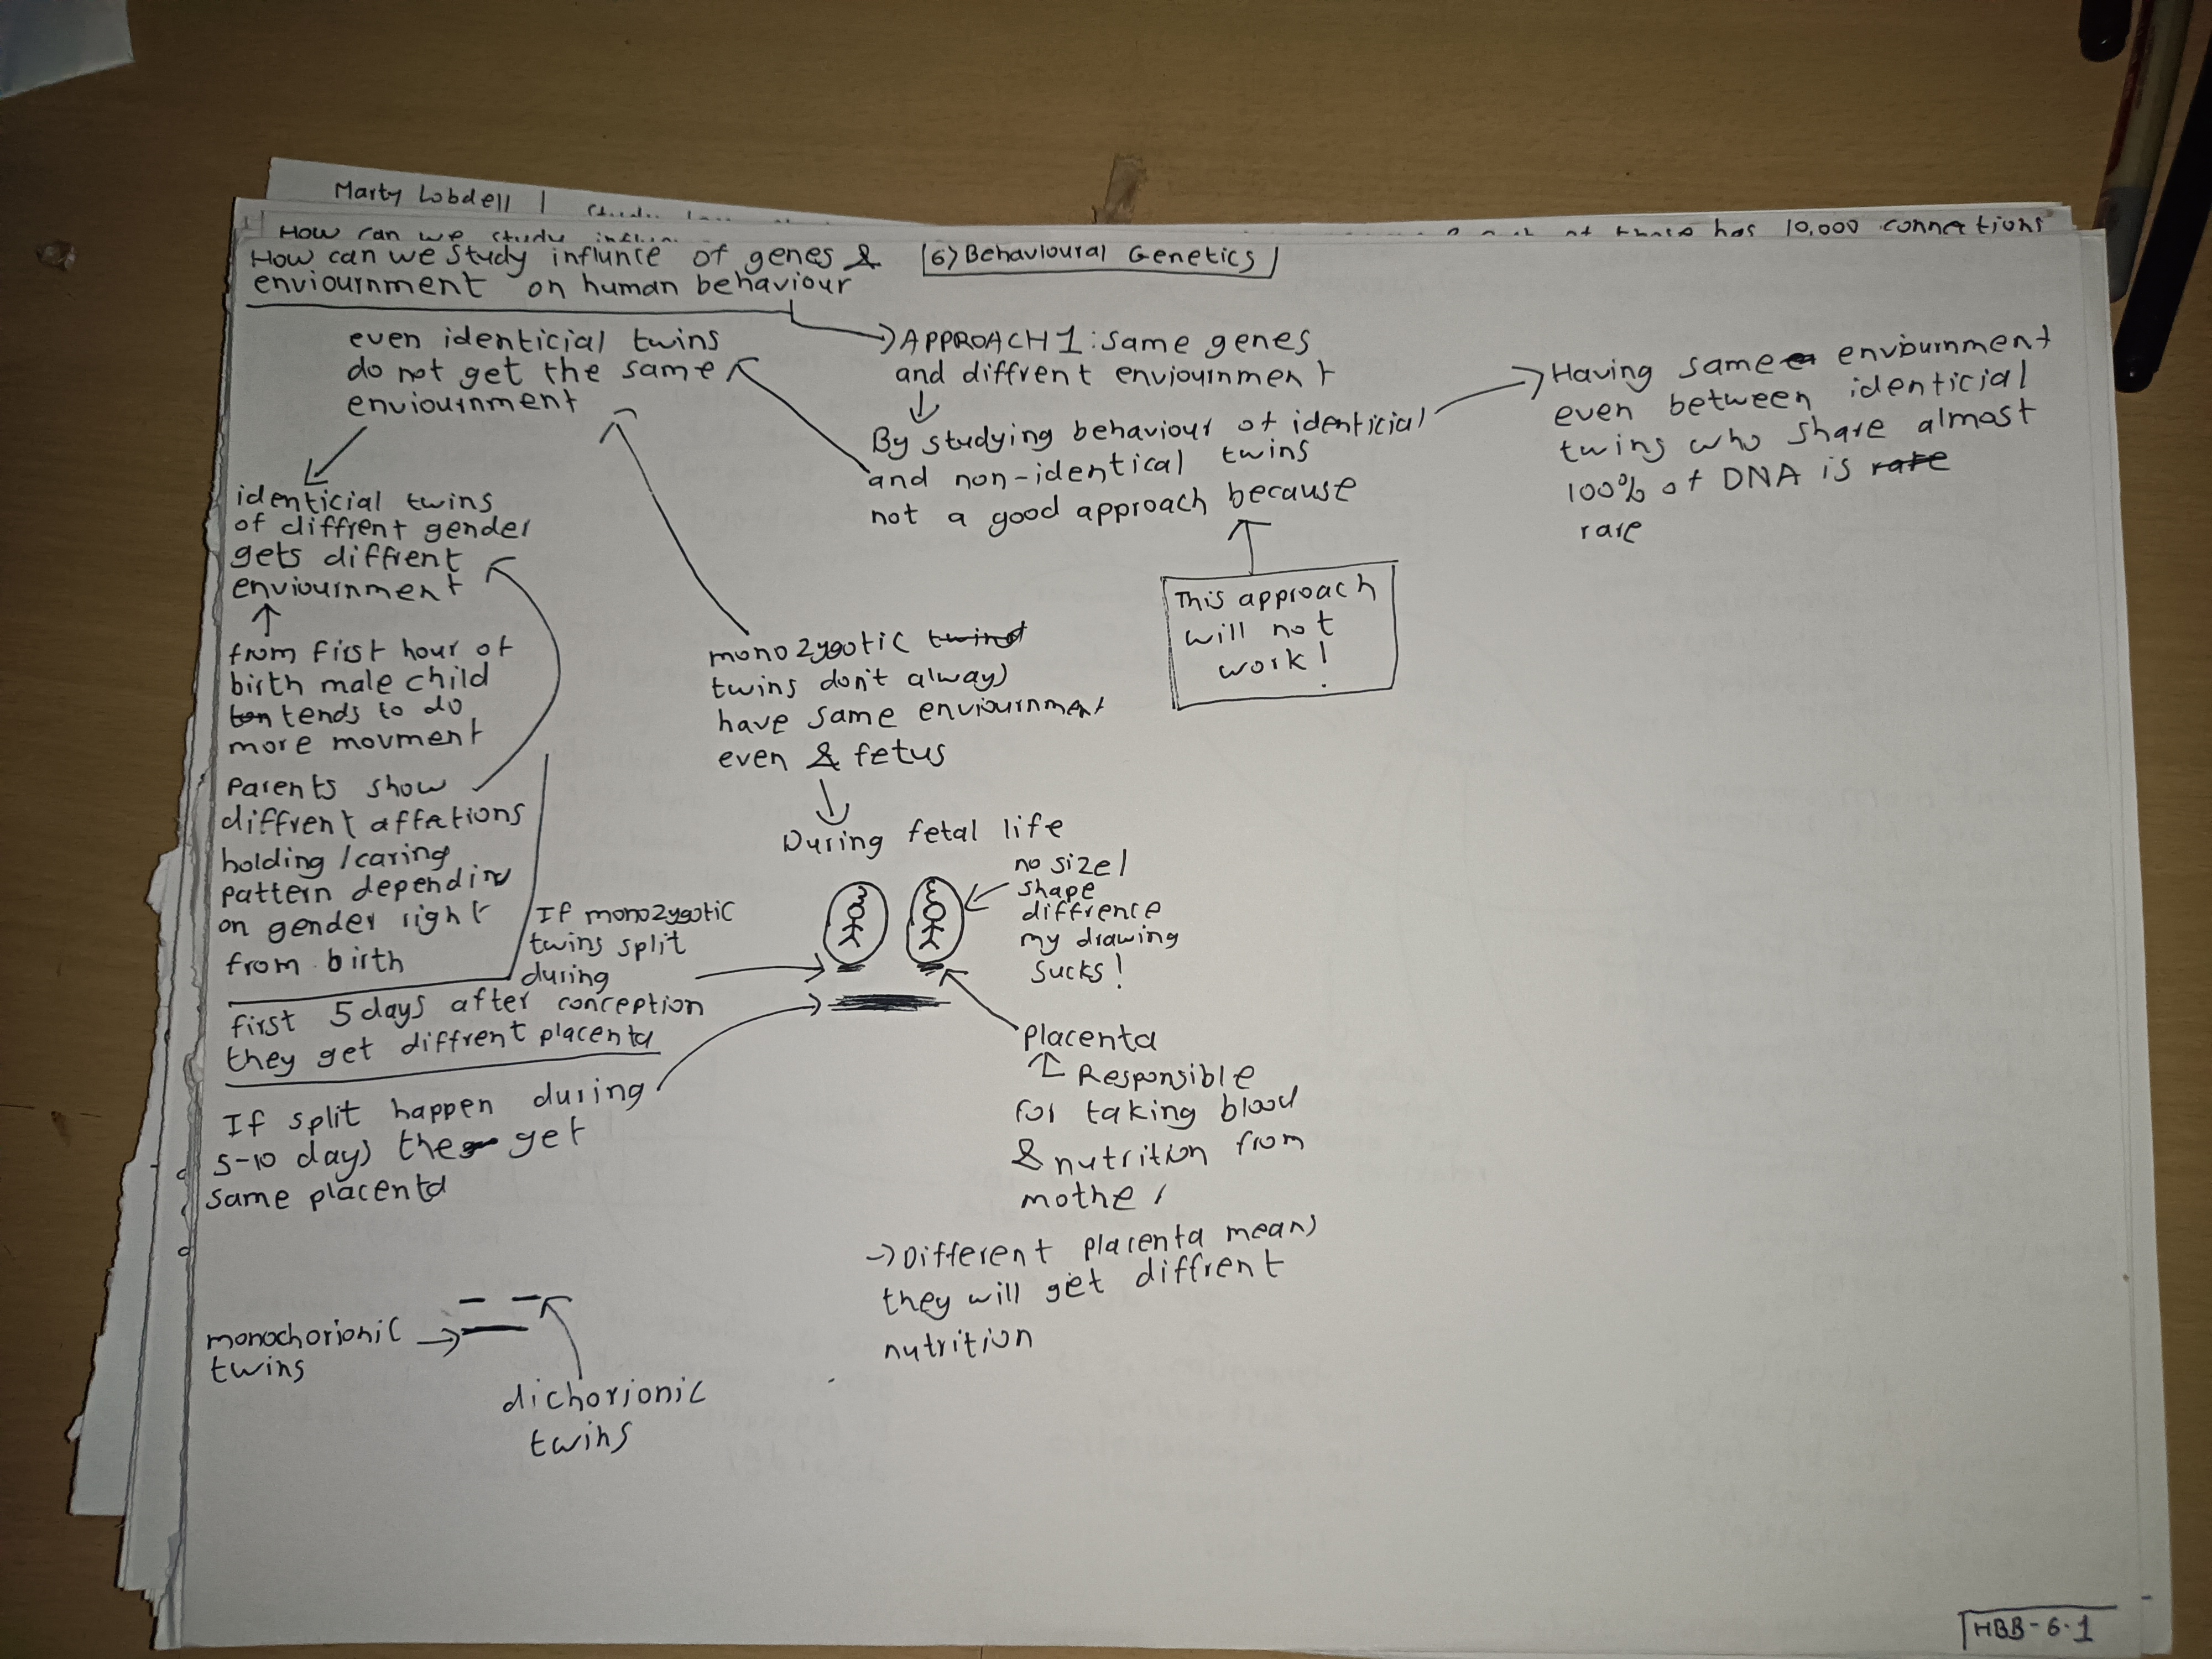 Marty Lobdell |
How can we study
has 10,000 connections
How can we study influnce of genes &
enviournment on human behaviour
6) Behavioural Genetics
even identicial twins
do not get the same
enviournment
APPROACH 1: same genes
and diffrent enviournment
By studying behaviour of identicial
and non-identical twins
not a good approach because
Having same enviournment
even between identicial
twins who share almost
100% of DNA is rare
rare
This approach
will not
work!
identicial twins
of diffrent gender
gets diffrent
enviournment
from first hour of
birth male child
tends to do
more movment
Parents show
diffrent affetions
holding/caring
pattern depending
on gender right
from birth
monozygotic twins
twins don't always
have same enviournment
even & fetus
During fetal life
no size/
shape
diffrence
my drawing
sucks!
If monozygotic
twins split
during
first 5 days after conception
they get diffrent placenta
If split happen during
5-10 days they get
same placenta
Placenta
Responsible
for taking blood
& nutrition from
mother
→Different placenta means
they will get diffrent
nutrition
monochorionic
twins
dichorionic
twins
HBB-6.1